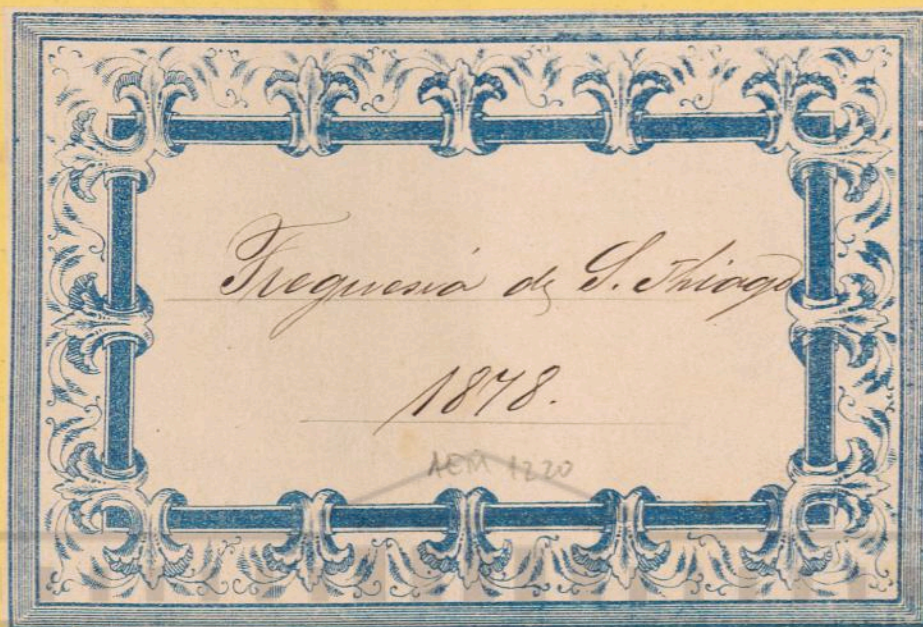 Freguesia de S. Thiago
1878.
AEM 1220